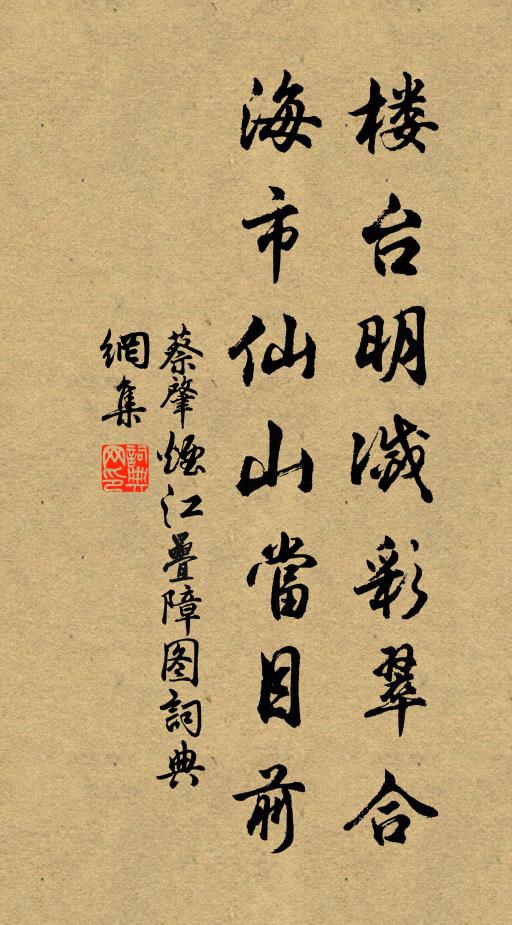 楼台明滅彩翠合
海市仙山當目前
蔡肇煙江疊障图詞典
網集
詞典網印